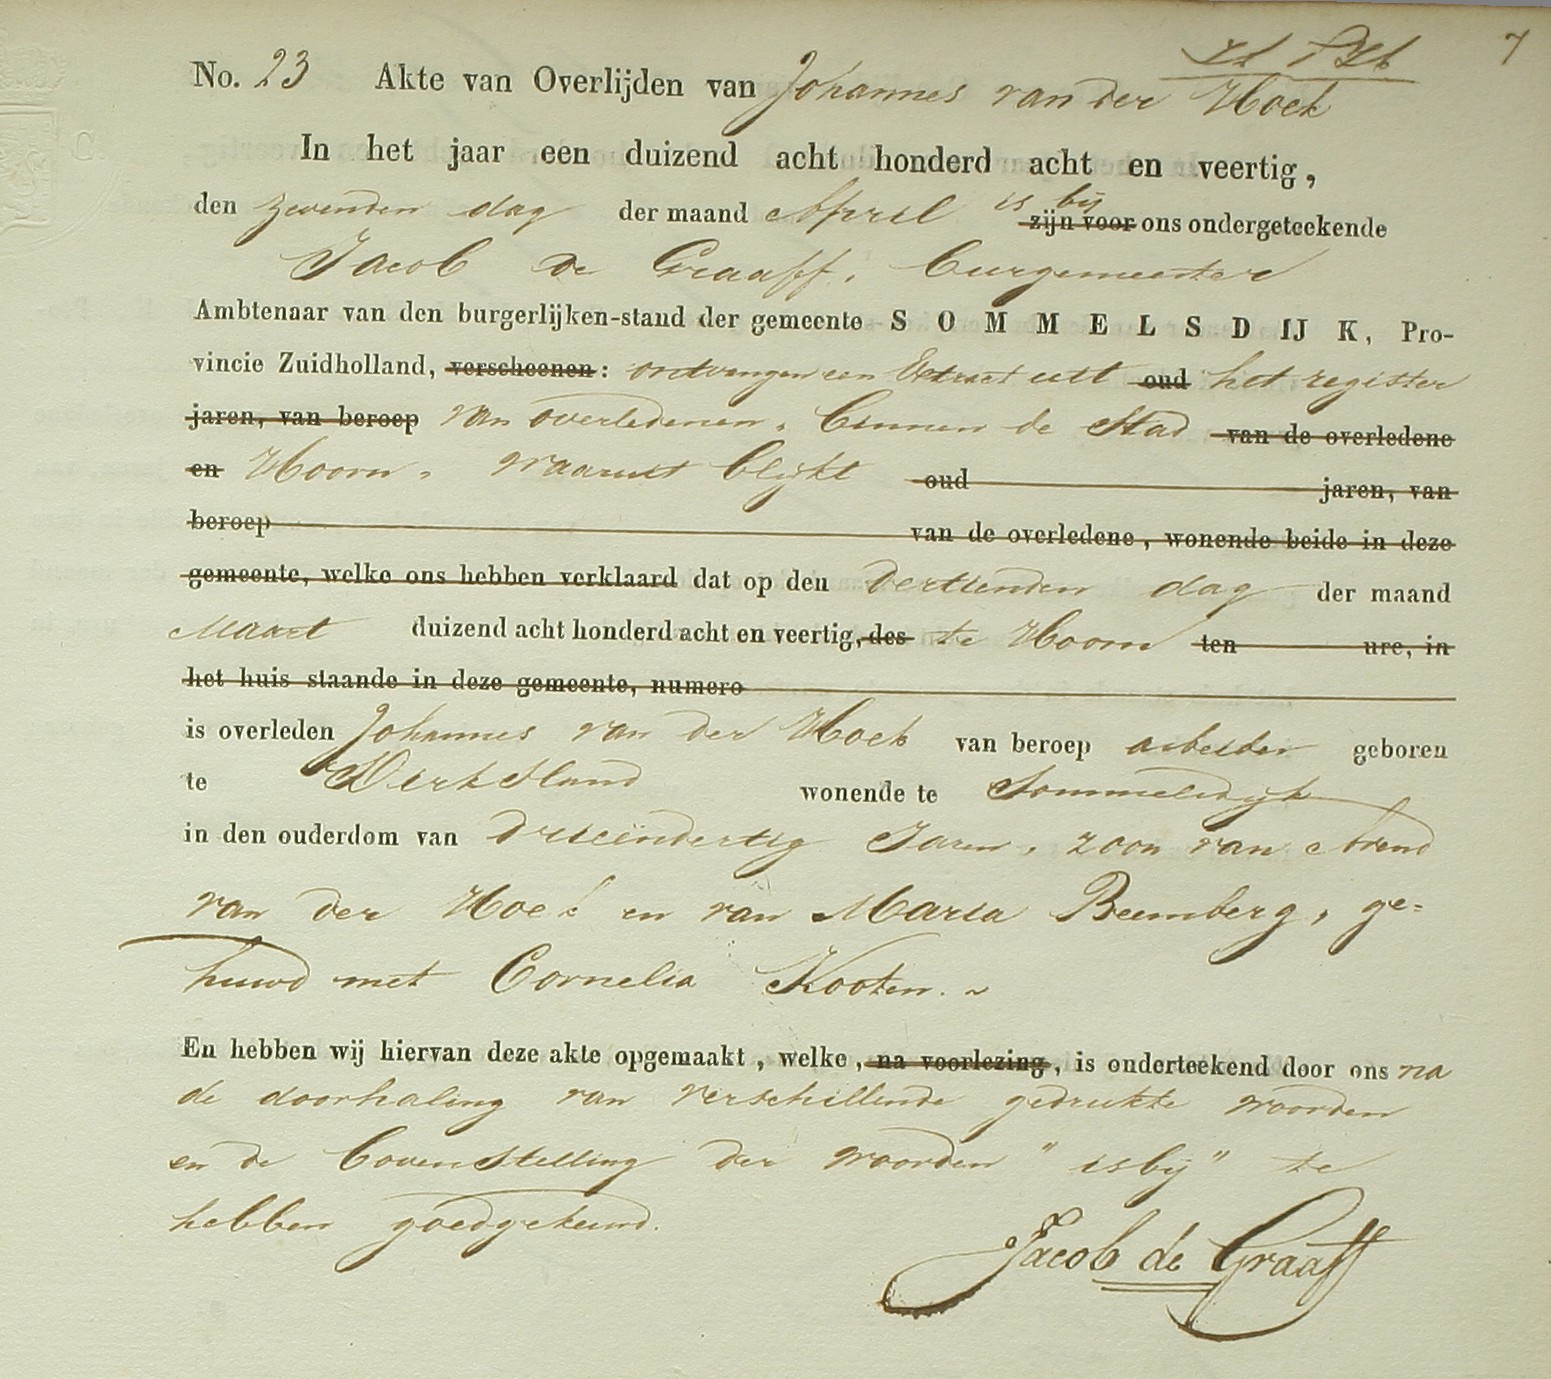 7
No. 23 Akte van Overlijden van Johannes van der Hoek
In het jaar een duizend acht honderd acht en veertig,
den zevenden dag der maand April is bij zijn voor ons ondergeteekende
Jacob de Graaff, burgemeester
Ambtenaar van den burgerlijken-stand der gemeente SOMMELSDIJK, Pro-
vincie Zuidholland, verscheenen: ontvangen een Extract uit oud het register
jaren, van beroep van overledenen, binnen de Stad van de overledene
en Hoorn, waaruit blijkt oud jaren, van
beroep van de overledene, wonende beide in deze
gemeente, welke ons hebben verklaard dat op den dertienden dag der maand
Maart duizend acht honderd acht en veertig, des te Hoorn ten ure, in
het huis staande in deze gemeente, numero
is overleden Johannes van der Hoek van beroep arbeider geboren
te Dirksland wonende te Sommelsdijk
in den ouderdom van drieëndertig Jaren, zoon van Arend
van der Hoek en van Maria Beemberg, ge=
huwd met Cornelia Kooten.
En hebben wij hiervan deze akte opgemaakt, welke, na voorlezing, is onderteekend door ons na
de doorhaling van verschillende gedrukte woorden
en de bovenstelling der woorden "is bij" te
hebben goedgekeurd.
Jacob de Graaff